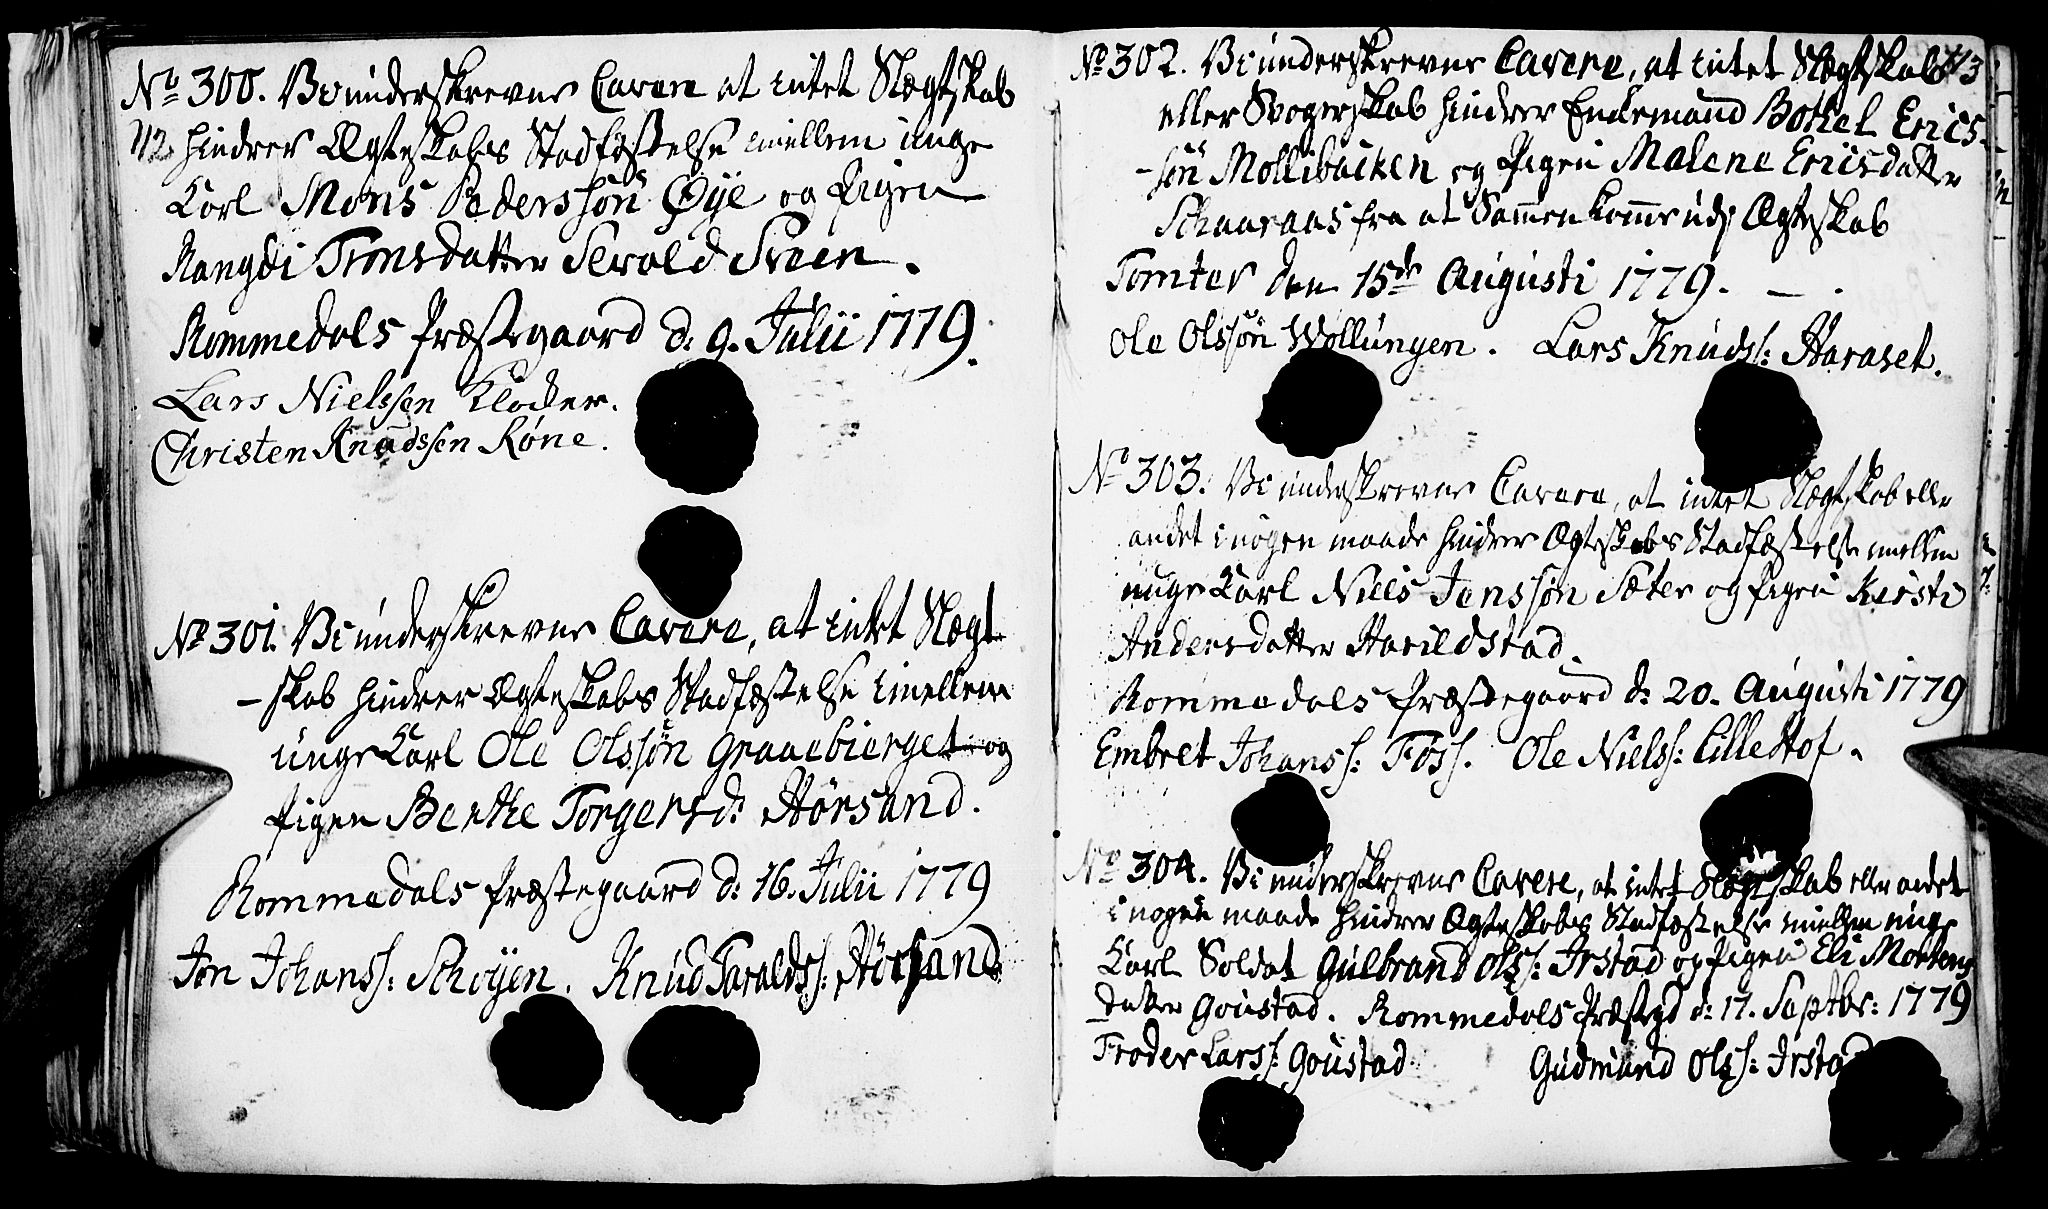 No 300. Vi underskrevne Cavere at intet Slægtskab
112 hindrer Ægteskabs Stadfæstelse imellem unge
Karl Mons Pederssøn Øye og Pigen
Rangdi Tronsdatter Serold Sveen.
Rommedals Præstegaard d. 9. Julii 1779.
Lars Nielssen Klocker.
Christen Knudssen Røne.
No 301. Vi underskrevne Cavere, at intet Slægt
-skab hindrer Ægteskabs Stadfæstelse imellem
unge Karl Ole Olssøn Graaebierget og
Pigen Berthe Torgersd: Hørsand.
Rommedals Præstegaard d: 16. Julii 1779
Jon Johanss: Schøyen. Knud Taraldss: Hørsand
113
No 302. Vi underskrevne Cavere, at intet Slægtskab
eller Svogerskab hindrer Enkemand Bottel Erics-
-søn Mollibacken og Pigen Malene Ericsdatter
Schaaraas fra at Sammenkomme udj Ægteskab
Tomter den 15de Augusti 1779. —.
Ole Olssøn Wollungen. Lars Knudss: Haraset.
No 303. Vi underskrevne Cavere, at intet Slægtskab eller
andet i nogen maade hindrer Ægteskabs Stadfæstelse imellem
unge Karl Niels Jenssøn Sæter og Pigen Kersti
Andersdatter Harildstad.
Rommedals Præstegaard d: 20. Augusti 1779
Embret Johanss: Foss. Ole Nielss: Lillestof.
No 304. Vi underskrevne Cavere, at intet Slægtskab eller andet
i nogen maade hindrer Ægteskabs Stadfæstelse imellem unge
Karl Soldat Gulbrand Olss: Irstad og Pigen Eli Mortens
-datter Goustad. Rommedals Præstegd d: 17. Septbr: 1779
Froder Larss: Goustad Gudmund Olss: Irstad